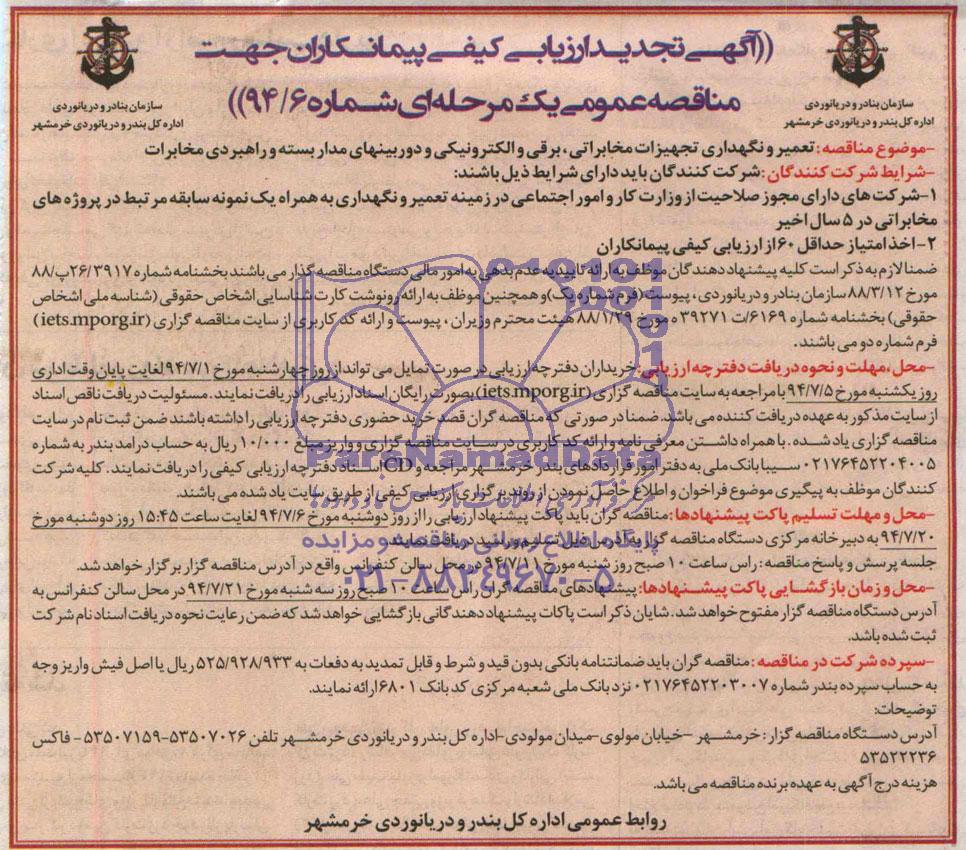 ((آگهی تجدید ارزیابی کیفی پیمانکاران جهت
مناقصه عمومی یک مرحله‌ای شماره ۹۴/۶))
سازمان بنادر و دریانوردی
اداره کل بندر و دریانوردی خرمشهر
سازمان بنادر و دریانوردی
اداره کل بندر و دریانوردی خرمشهر
-موضوع مناقصه: تعمیر و نگهداری تجهیزات مخابراتی، برقی و الکترونیکی و دوربینهای مدار بسته و راهبردی مخابرات
-شرایط شرکت کنندگان: شرکت کنندگان باید دارای شرایط ذیل باشند:
۱-شرکت های دارای مجوز صلاحیت از وزارت کار و امور اجتماعی در زمینه تعمیر و نگهداری به همراه یک نمونه سابقه مرتبط در پروژه های
مخابراتی در ۵ سال اخیر
۲-اخذ امتیاز حداقل ۶۰ از ارزیابی کیفی پیمانکاران
ضمنا لازم به ذکر است کلیه پیشنهاد دهندگان موظف به ارائه تاییدیه عدم بدهی به امور مالی دستگاه مناقصه گذار می باشند بخشنامه شماره ۲۶/۳۹۱۷پ/۸۸
مورخ ۸۸/۳/۱۲ سازمان بنادر و دریانوردی، پیوست (فرم شماره یک) و همچنین موظف به ارائه رونوشت کارت شناسایی اشخاص حقوقی (شناسه ملی اشخاص
حقوقی) بخشنامه شماره ۶۱۶۹/ت ۳۹۲۷۱ ه مورخ ۸۸/۱/۲۹ هیئت محترم وزیران، پیوست و ارائه کد کاربری از سایت مناقصه گزاری (iets.mporg.ir)
فرم شماره دو می باشند.
-محل، مهلت و نحوه دریافت دفترچه ارزیابی: خریداران دفترچه ارزیابی در صورت تمایل می تواند از روز چهارشنبه مورخ ۹۴/۷/۱ لغایت پایان وقت اداری
روز یکشنبه مورخ ۹۴/۷/۵ با مراجعه به سایت مناقصه گزاری (iets.mporg.ir) بصورت رایگان اسناد ارزیابی را دریافت نمایند. مسئولیت دریافت ناقص اسناد
از سایت مذکور به عهده دریافت کننده می باشد. ضمنا در صورتی که مناقصه گران قصد خرید حضوری دفترچه ارزیابی را داشته باشند ضمن ثبت نام در سایت
مناقصه گزاری یاد شده. با همراه داشتن معرفی نامه و ارائه کد کاربری در سایت مناقصه گزاری و واریز مبلغ ۱۰/۰۰۰ ریال به حساب درآمد بندر به شماره
۰۲۱۷۶۴۵۲۲۰۴۰۰۵ سیبا بانک ملی به دفتر امور قراردادهای بندر خرمشهر مراجعه و CD اسناد دفترچه ارزیابی کیفی را دریافت نمایند. کلیه شرکت
کنندگان موظف به پیگیری موضوع فراخوان و اطلاع حاصل نمودن از روند برگزاری ارزیابی کیفی از طریق سایت یاد شده می باشند.
-محل و مهلت تسلیم پاکت پیشنهادها: مناقصه گران باید پاکت پیشنهاد ارزیابی را از روز دوشنبه مورخ ۹۴/۷/۶ لغایت ساعت ۱۵:۴۵ روز دوشنبه مورخ
۹۴/۷/۲۰ به دبیرخانه مرکزی دستگاه مناقصه گزار به آدرس ذیل تسلیم و رسید دریافت نمایند.
جلسه پرسش و پاسخ مناقصه: راس ساعت ۱۰ صبح روز شنبه مورخ ۹۴/۷/۱۱ در محل سالن کنفرانس واقع در آدرس مناقصه گزار برگزار خواهد شد.
-محل و زمان بازگشایی پاکت پیشنهادها: پیشنهادهای مناقصه گران راس ساعت ۱۰ صبح روز سه شنبه مورخ ۹۴/۷/۲۱ در محل سالن کنفرانس به
آدرس دستگاه مناقصه گزار مفتوح خواهد شد. شایان ذکر است پاکات پیشنهاد دهندگانی بازگشایی خواهد شد که ضمن رعایت نحوه دریافت اسناد نام شرکت
ثبت شده باشد.
-سپرده شرکت در مناقصه: مناقصه گران باید ضمانتنامه بانکی بدون قید و شرط و قابل تمدید به دفعات به ۵۲۵/۹۲۸/۹۳۳ ریال یا اصل فیش واریز وجه
به حساب سپرده بندر شماره ۰۲۱۷۶۴۵۲۲۰۳۰۰۷ نزد بانک ملی شعبه مرکزی کد بانک ۶۸۰۱ ارائه نمایند.
توضیحات:
آدرس دستگاه مناقصه گزار: خرمشهر -خیابان مولوی-میدان مولودی-اداره کل بندر و دریانوردی خرمشهر تلفن ۵۳۵۰۷۰۲۶-۵۳۵۰۷۱۵۹- فاکس
۵۳۵۲۲۲۳۶
هزینه درج آگهی به عهده برنده مناقصه می باشد.
روابط عمومی اداره کل بندر و دریانوردی خرمشهر
ParsNamadData
پایگاه اطلاع رسانی مناقصه و مزایده
۰۲۱-۸۸۳۴۹۶۷۰-۵